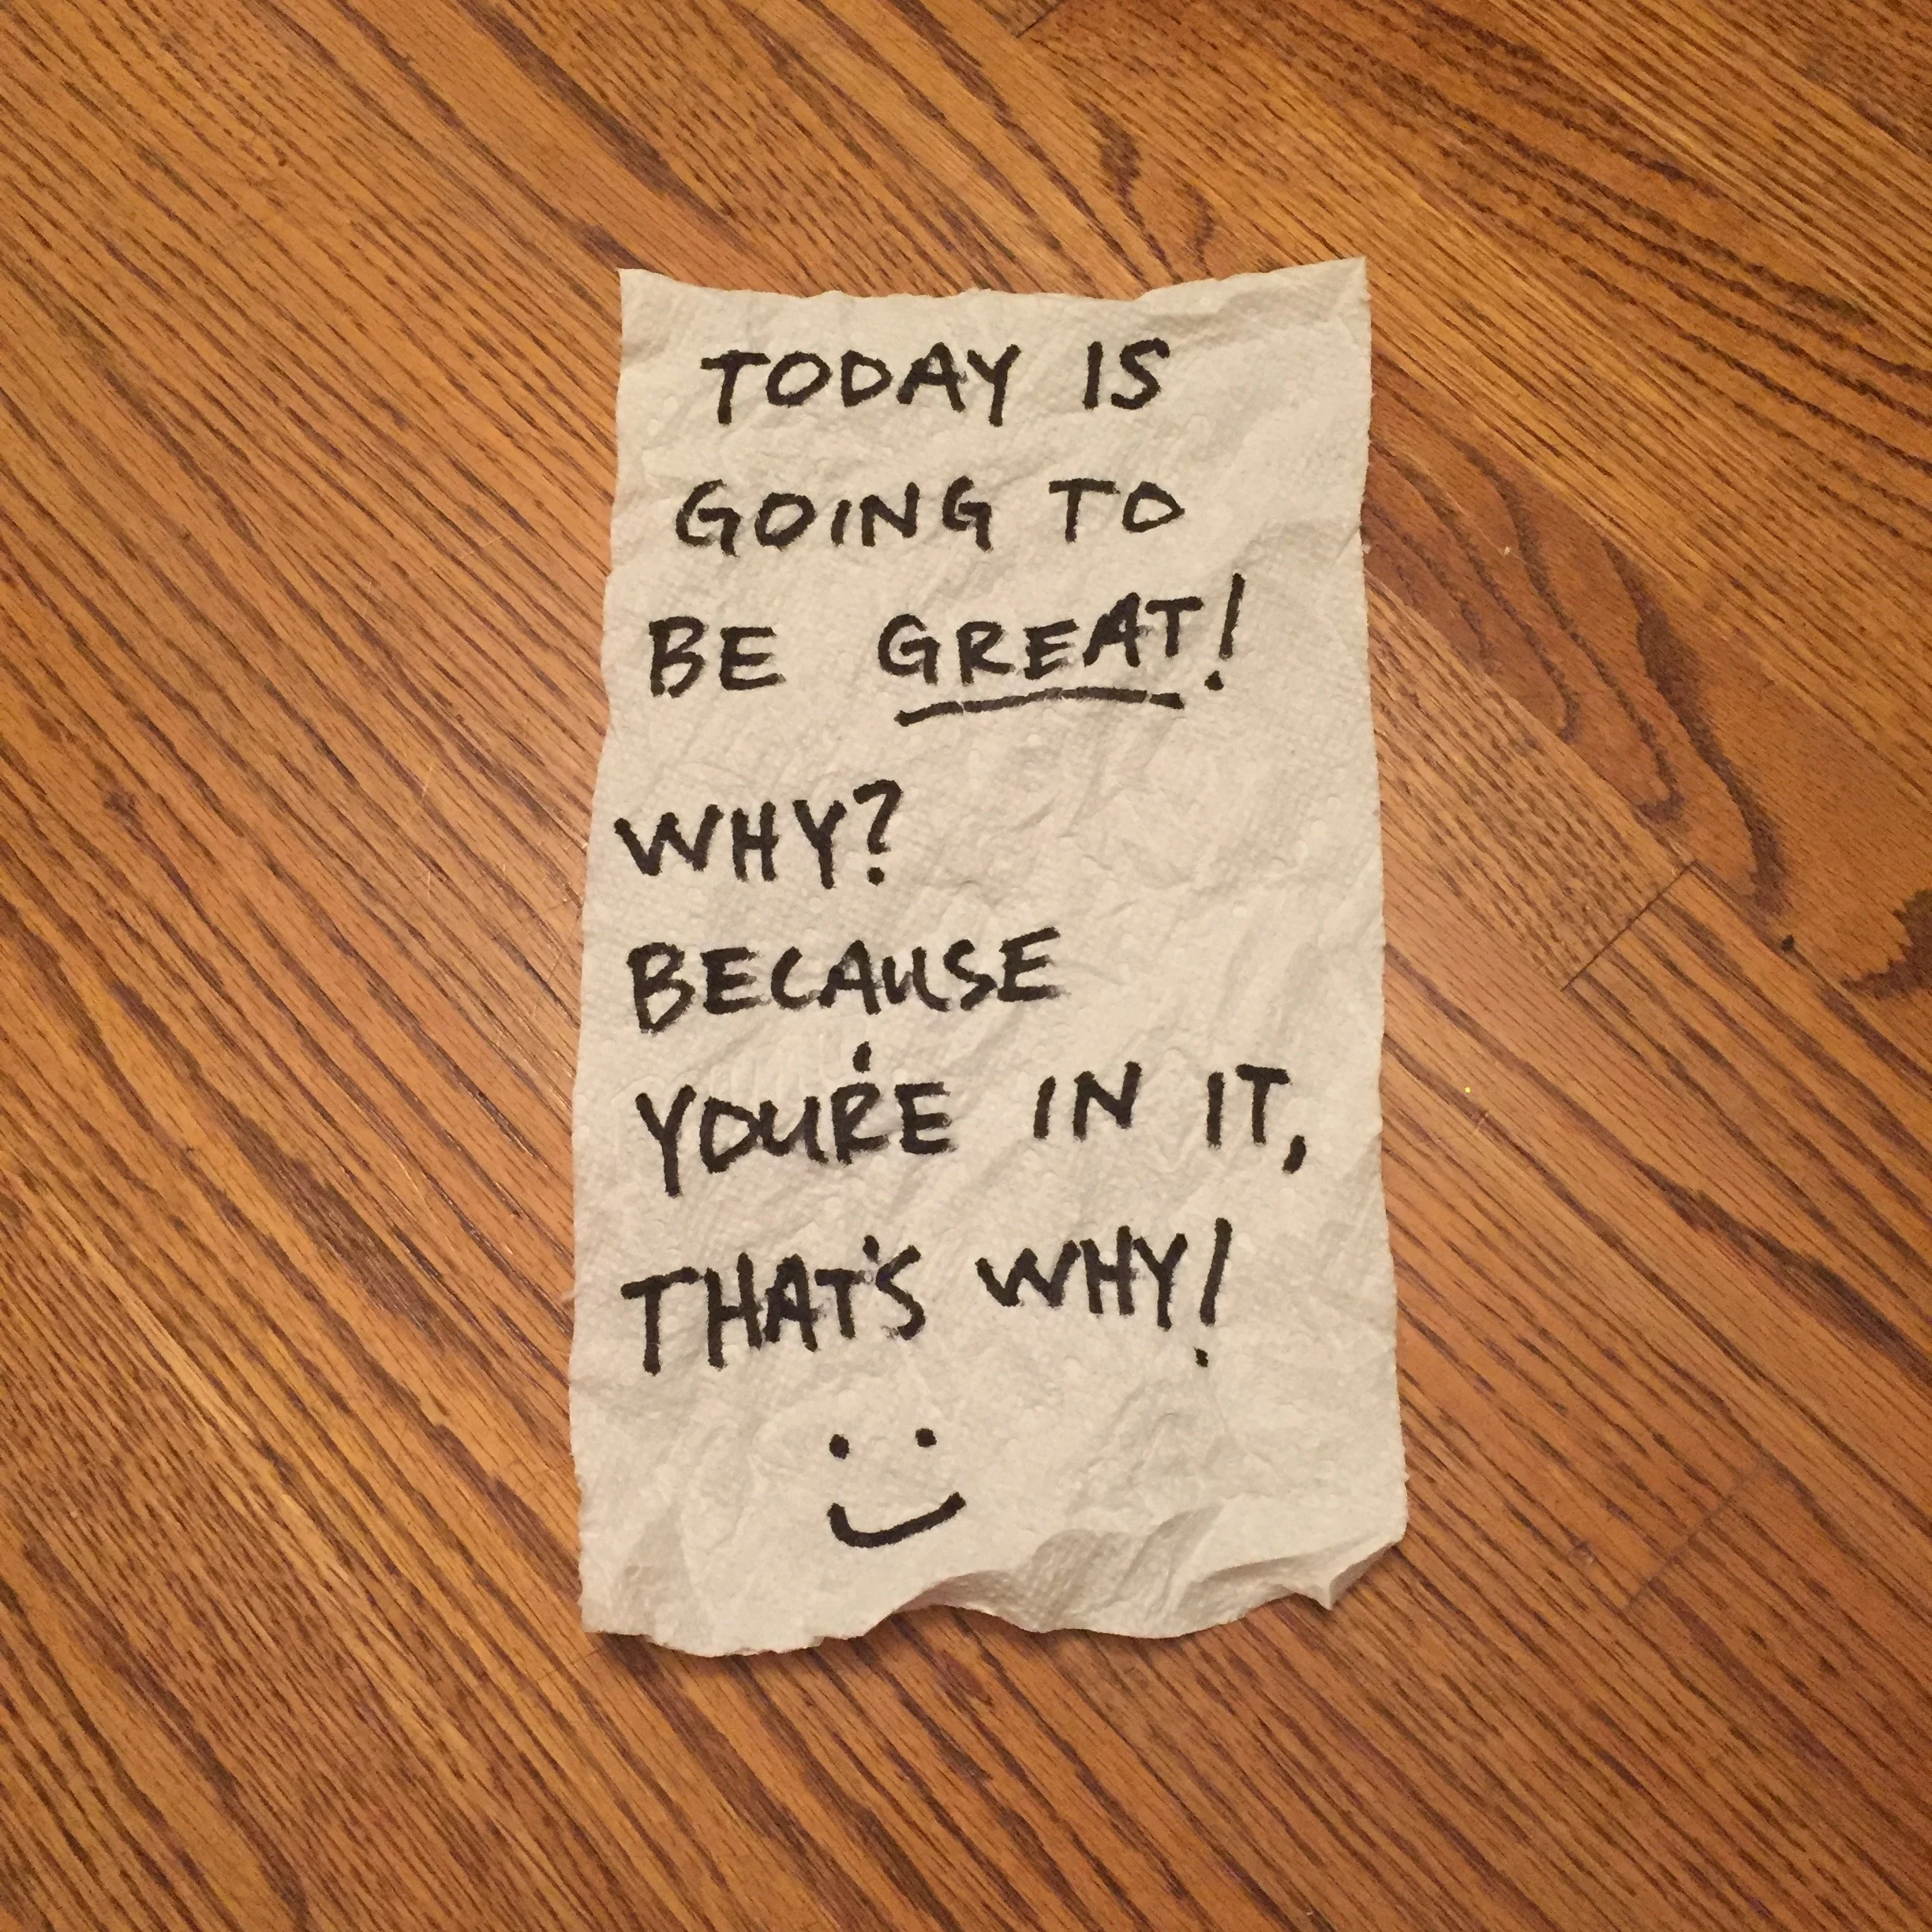 TODAY IS
GOING TO
BE GREAT!
WHY?
BECAUSE
YOU'RE IN IT,
THAT'S WHY!